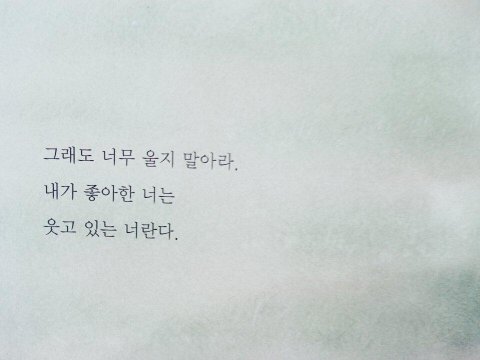 그래도 너무 울지 말아라.
내가 좋아한 너는
웃고 있는 너란다.